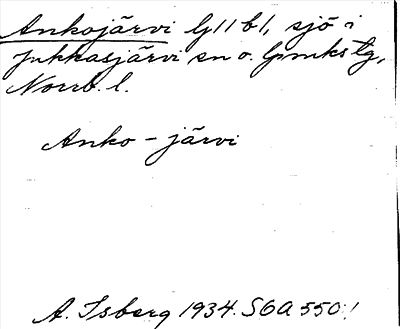 Ankojärvi G11 b1, sjö i
Jukkasjärvi sn o. lpmkstg,
Norrb. l.
Anko - järvi
A. Isberg 1934. SGA 550!